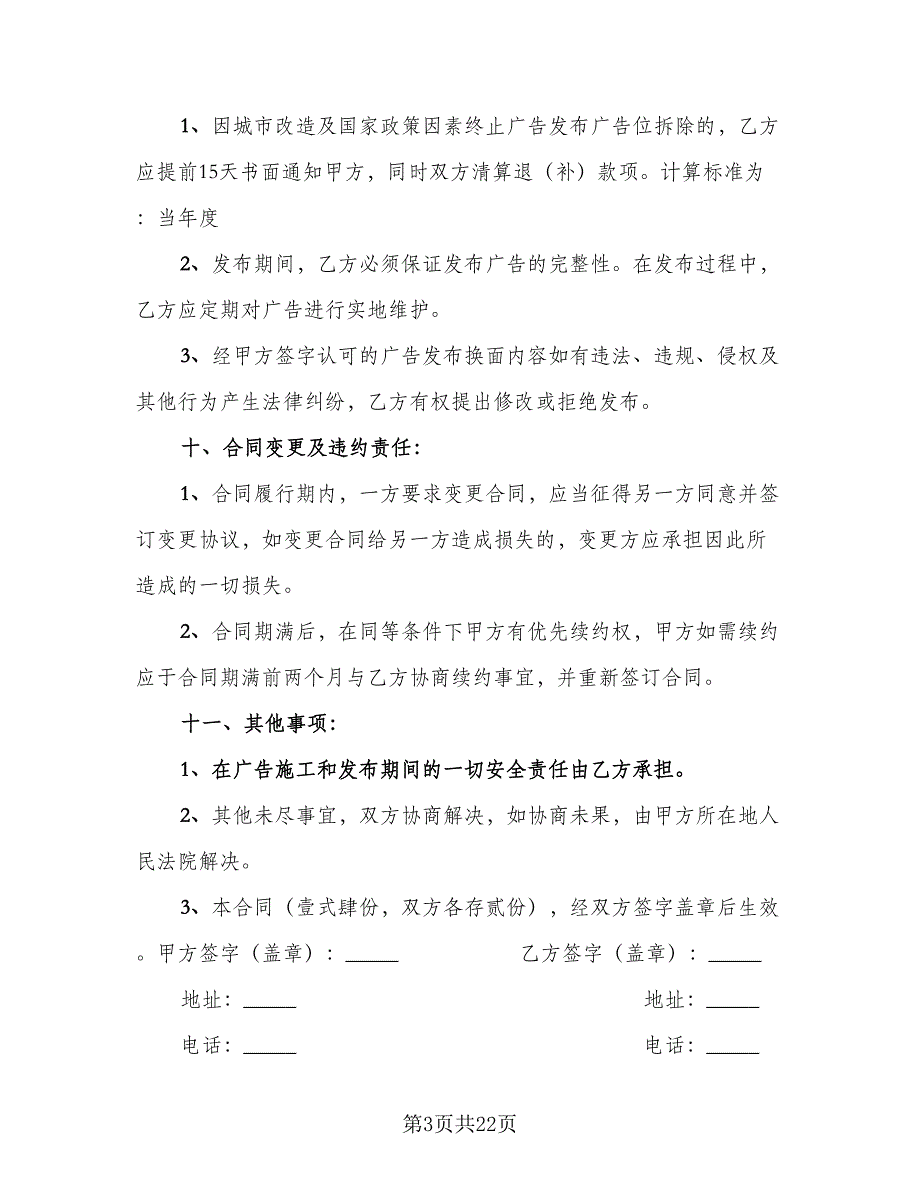 1、因城市改造及国家政策因素终止广告发布广告位拆除的，乙方
应提前15天书面通知甲方，同时双方清算退（补）款项。计算标准为
：当年度
2、发布期间，乙方必须保证发布广告的完整性。在发布过程中，
乙方应定期对广告进行实地维护。
3、经甲方签字认可的广告发布换面内容如有违法、违规、侵权及
其他行为产生法律纠纷，乙方有权提出修改或拒绝发布。
十、合同变更及违约责任：
1、合同履行期内，一方要求变更合同，应当征得另一方同意并签
订变更协议，如变更合同给另一方造成损失的，变更方应承担因此所
造成的一切损失。
2、合同期满后，在同等条件下甲方有优先续约权，甲方如需续约
应于合同期满前两个月与乙方协商续约事宜，并重新签订合同。
十一、其他事项：
1、在广告施工和发布期间的一切安全责任由乙方承担。
2、其他未尽事宜，双方协商解决，如协商未果，由甲方所在地人
民法院解决。
3、本合同（壹式肆份，双方各存贰份），经双方签字盖章后生效
。甲方签字（盖章）：_____ 乙方签字（盖章）：_____
地址：_____ 地址：_____
电话：_____ 电话：_____
第3页共22页